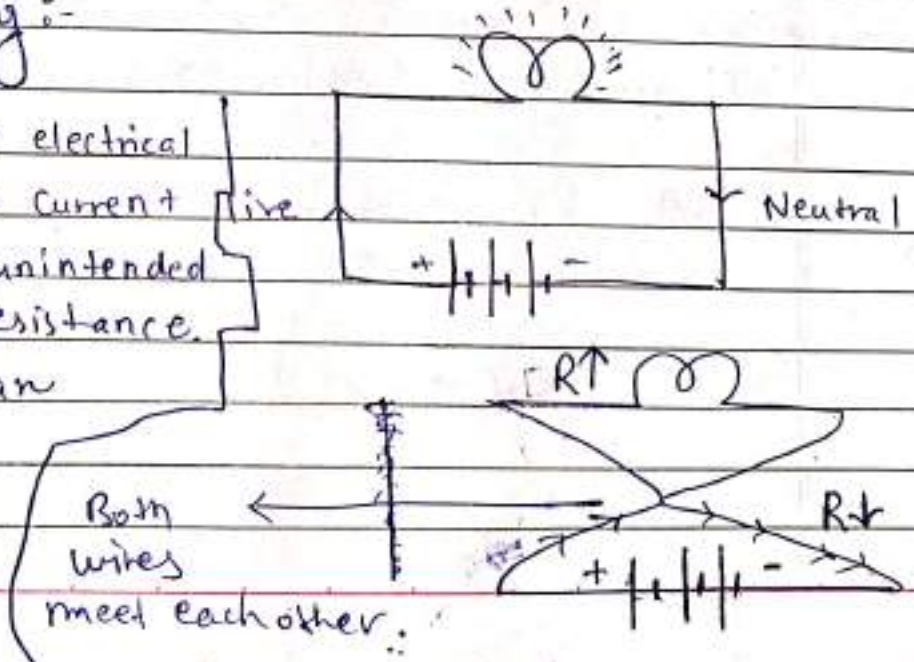 g:-
electrical
current
unintended
esistance.
an
live
Neutral
+ -
R↑
Both
wires
meet eachother.
R↓
+ -